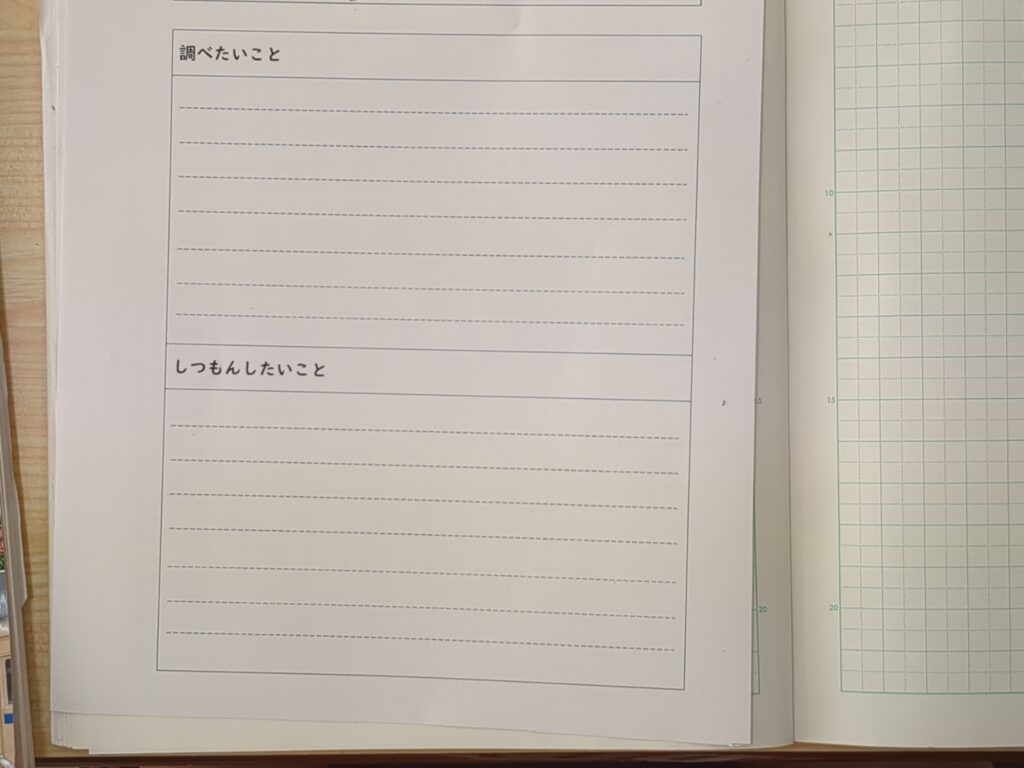 調べたいこと
しつもんしたいこと
10
15
20
5
20